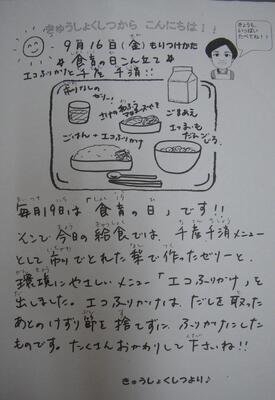 きゅうしょくしつから こんにちは！
きょうも、
いっぱい
たべてね！！
9月16日(金) もりつけかた
☆食育の日こん立て☆
エコふりかけと千産千消!!
市川なしの
ゼリー!
ごまあえ
ごはん+エコふりかけ
毎月19日は「食育の日」です!!
そこで今日の給食では、千産千消メニュー
として市川でとれた梨で作ったゼリーと、
環境にやさしいメニュー「エコふりかけ」を
出しました。エコふりかけは、だしを取った
あとのけずり節を捨てずに、ふりかけにした
ものです。たくさんおかわりして下さいね!!
きゅうしょくしつより♪